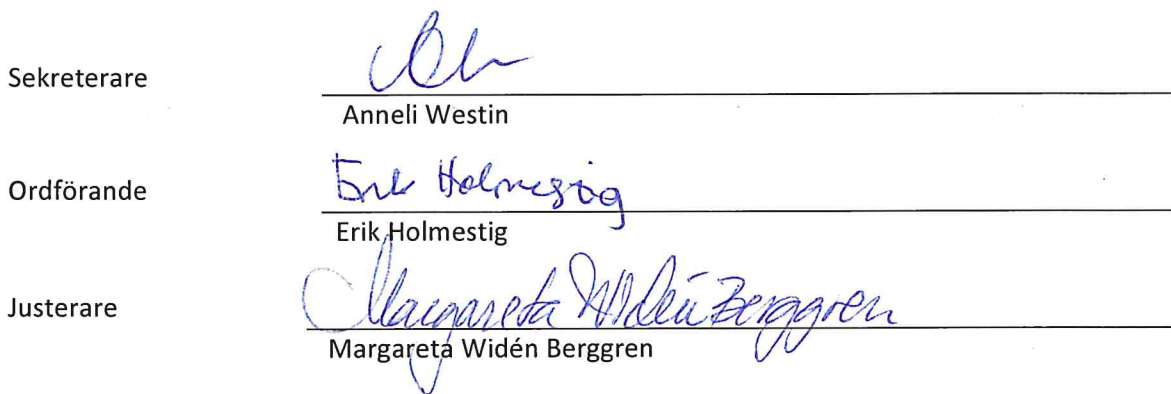 Sekreterare
Anneli Westin
Ordförande Erik Holmestig
Erik Holmestig
Justerare Margareta Widén Berggren
Margareta Widén Berggren